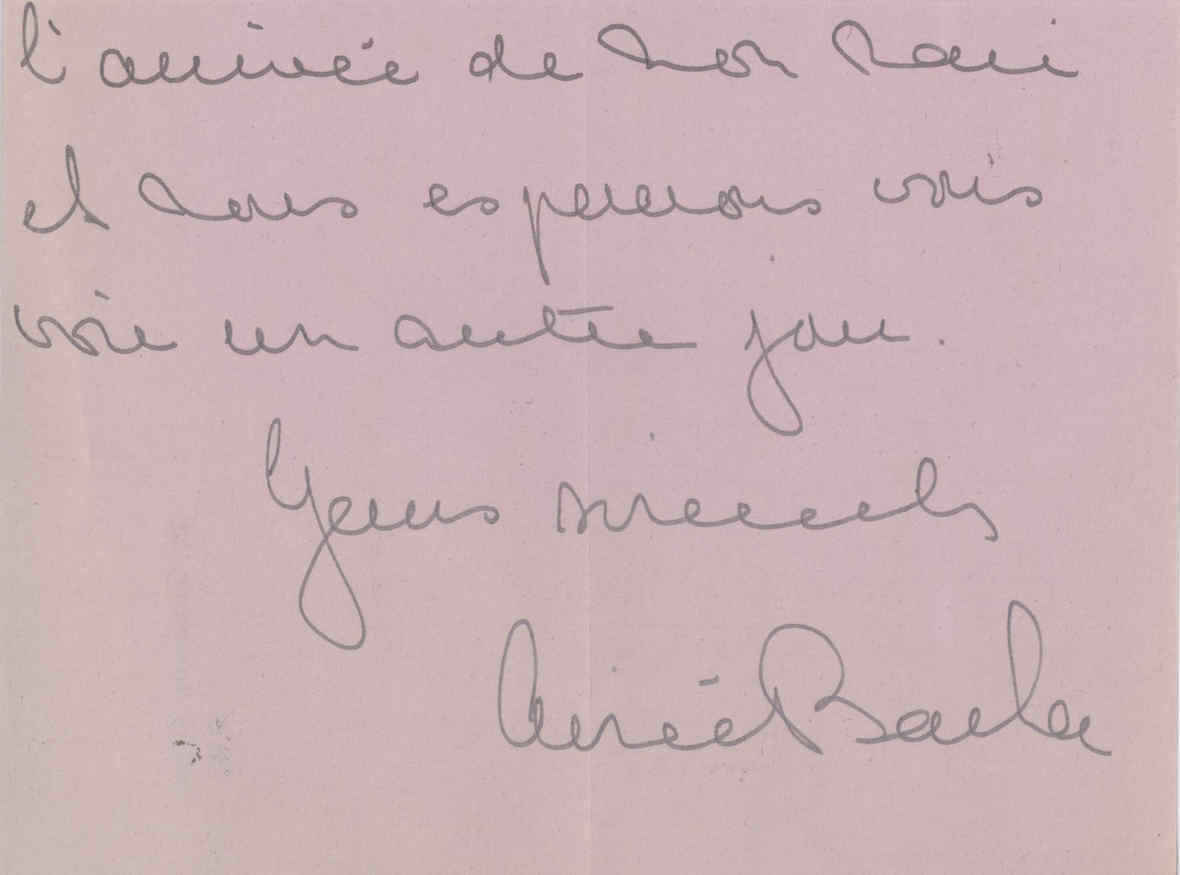 l'arrivée de mon mari
et nous esperons vous
voir un autre jour.
Yours sincerely
Aimée Barla